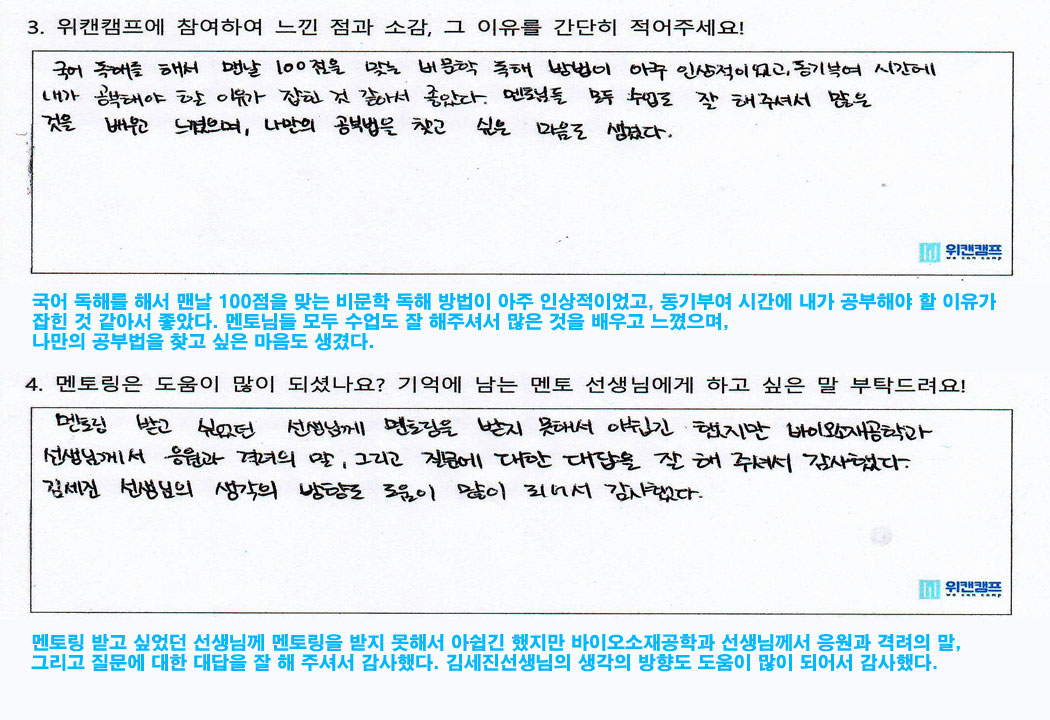 3. 위캔캠프에 참여하여 느낀 점과 소감, 그 이유를 간단히 적어주세요!
국어 독해를 해서 맨날 100점을 맞는 비문학 독해 방법이 아주 인상적이었고, 동기부여 시간에
내가 공부해야 할 이유가 잡힌 것 같아서 좋았다. 멘토님들 모두 수업도 잘 해주셔서 많은
것을 배우고 느꼈으며, 나만의 공부법을 찾고 싶은 마음도 생겼다.
위캔캠프
we can camp
국어 독해를 해서 맨날 100점을 맞는 비문학 독해 방법이 아주 인상적이었고, 동기부여 시간에 내가 공부해야 할 이유가
잡힌 것 같아서 좋았다. 멘토님들 모두 수업도 잘 해주셔서 많은 것을 배우고 느꼈으며,
나만의 공부법을 찾고 싶은 마음도 생겼다.
4. 멘토링은 도움이 많이 되셨나요? 기억에 남는 멘토 선생님에게 하고 싶은 말 부탁드려요!
멘토링 받고 싶었던 선생님께 멘토링을 받지 못해서 아쉽긴 했지만 바이오소재공학과
선생님께서 응원과 격려의 말, 그리고 질문에 대한 대답을 잘 해 주셔서 감사했다.
김세진 선생님의 생각의 방향도 도움이 많이 되어서 감사했다.
위캔캠프
we can camp
멘토링 받고 싶었던 선생님께 멘토링을 받지 못해서 아쉽긴 했지만 바이오소재공학과 선생님께서 응원과 격려의 말,
그리고 질문에 대한 대답을 잘 해 주셔서 감사했다. 김세진선생님의 생각의 방향도 도움이 많이 되어서 감사했다.